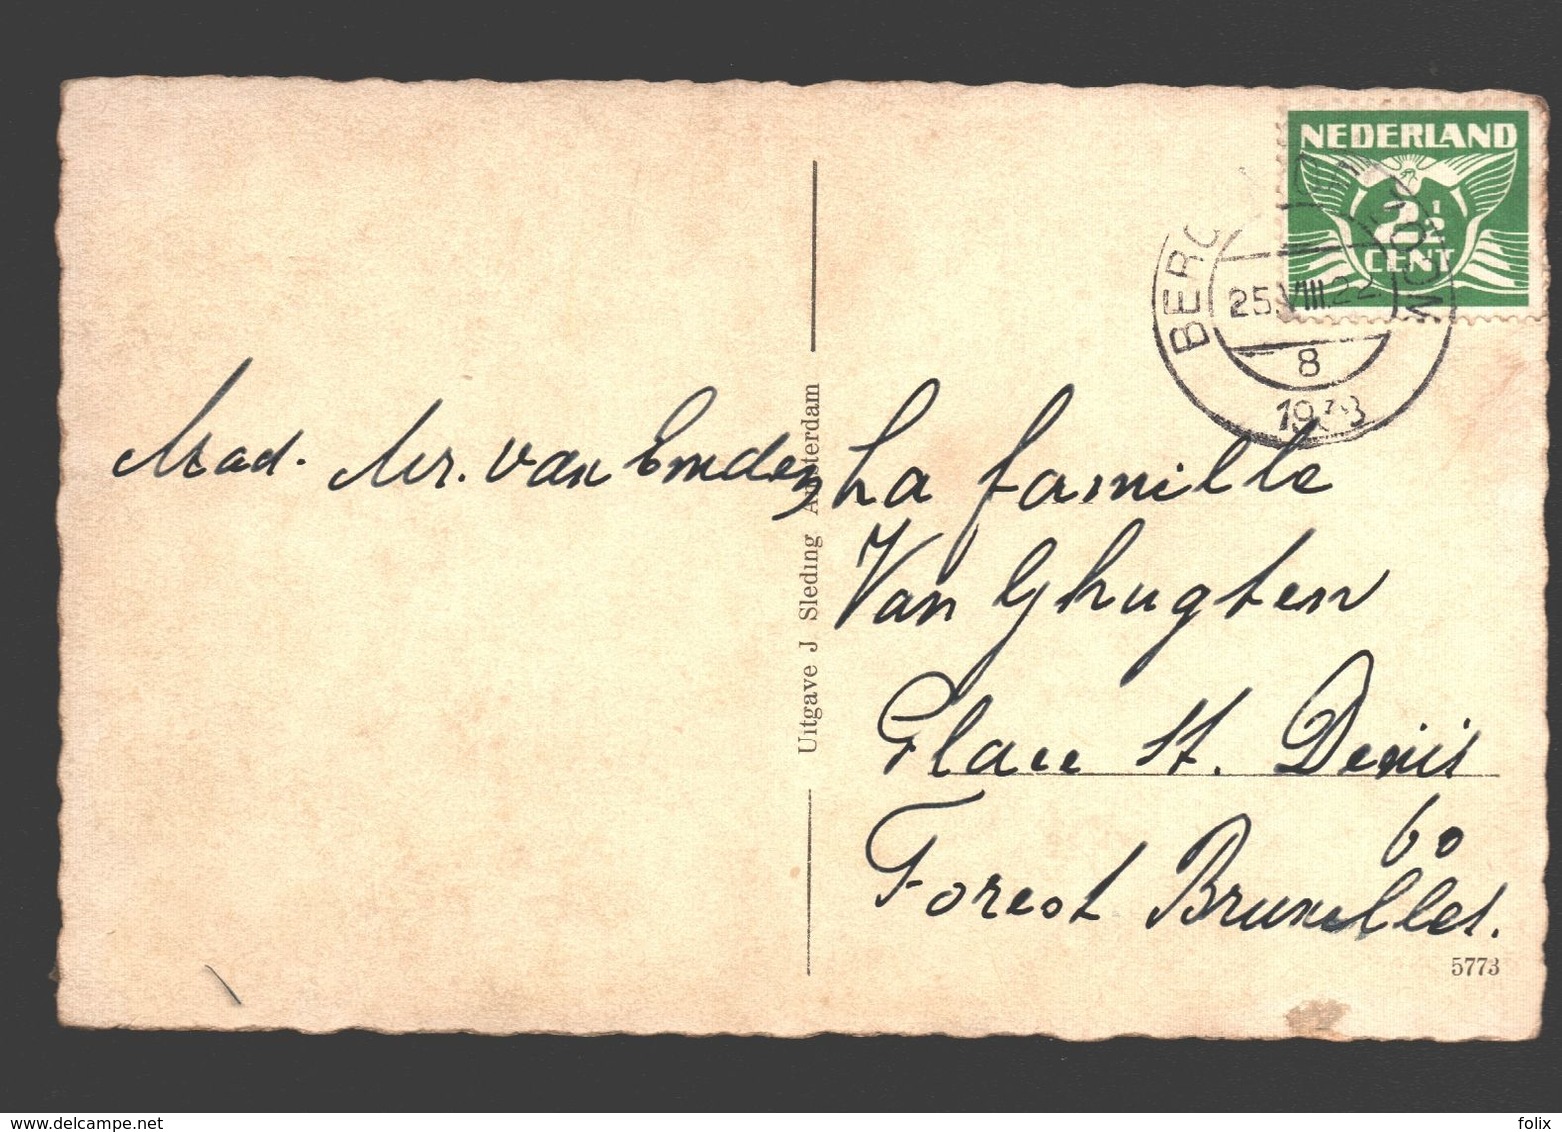 NEDERLAND
2½
CENT
BERG ZOOM
25.VIII.22
8
1938
Mad. Mr. van Emden
La famille
Van Ghugten
Place St. Denis
60
Forest Bruxelles.
Uitgave J Sleding Amsterdam
5773
delcampe.net
felix